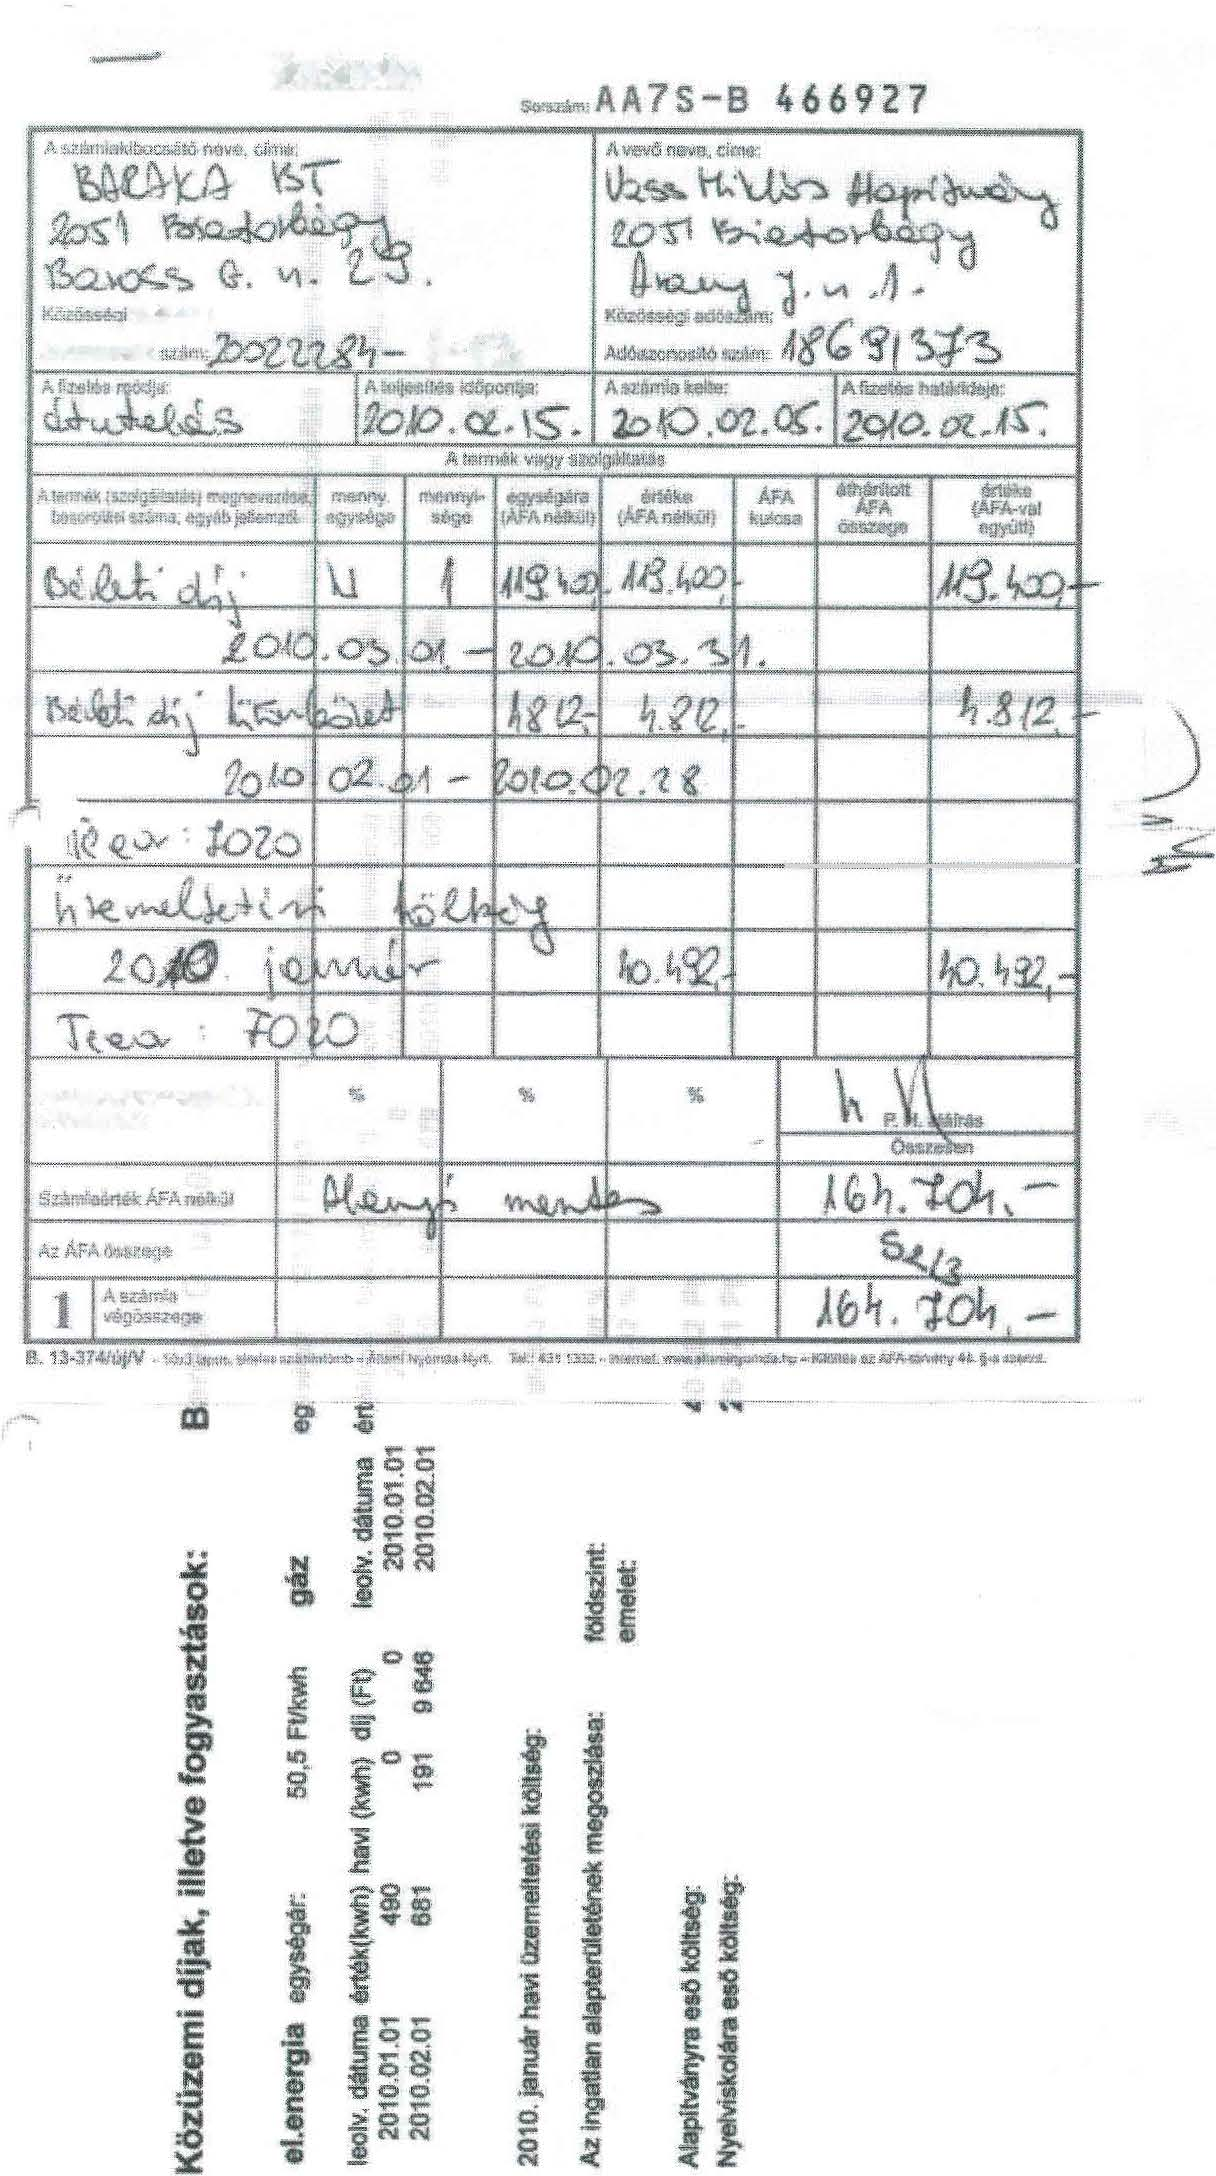 Sorszám: AA7S-B 466927
A számlakibocsátó neve, címe:
BARAKA BT
2051 Biatorbágy
Baross G. u. 29.
Közösségi
szám: 20022284-
A vevő neve, címe:
Vass Miklós Alapítvány
2051 Biatorbágy
Arany J. u. 1.
Közösségi adószám:
Adóazonosító szám: 18691373
A fizetés módja: A teljesítés időpontja: A számla kelte: A fizetés határideje:
átutalás 2010.02.15. 2010.02.05. 2010.02.15.
A termék vagy szolgáltatás
A termék (szolgáltatás) megnevezése, besorolási száma, egyéb jellemzői menny. egysége mennyi-sége egységára (ÁFA nélkül) értéke (ÁFA nélkül) ÁFA kulcsa áthárított ÁFA összege értéke (ÁFA-val együtt)
Bérleti díj 1 119.400,- 119.400,- 119.400,-
2010.03.01. - 2010.03.31.
Bérleti díj 4812,- 4.812,- 4.812,-
2010 02.01 - 2010.02.28
: 7020
üzemeltetési költség
2010. január 40.492,- 40.492,-
: 7020
% % %
P. H. aláírás
Összesen
Számlaérték ÁFA nélkül Alanyi mentes 164.704.-
Az ÁFA összege
1 A számla végösszege 164.704,-
B. 13-374/új/V
Közüzemi díjak, illetve fogyasztások: B
el.energia egységár: 50,5 Ft/kwh gáz eg
leolv. dátuma érték(kwh) havi (kwh) díj (Ft) leolv. dátuma ért
2010.01.01 490 0 0 2010.01.01
2010.02.01 681 191 9 646 2010.02.01
2010. január havi üzemeltetési költség:
Az ingatlan alapterületének megoszlása: földszint:
emelet:
Alapítványra eső költség:
Nyelviskolára eső költség: